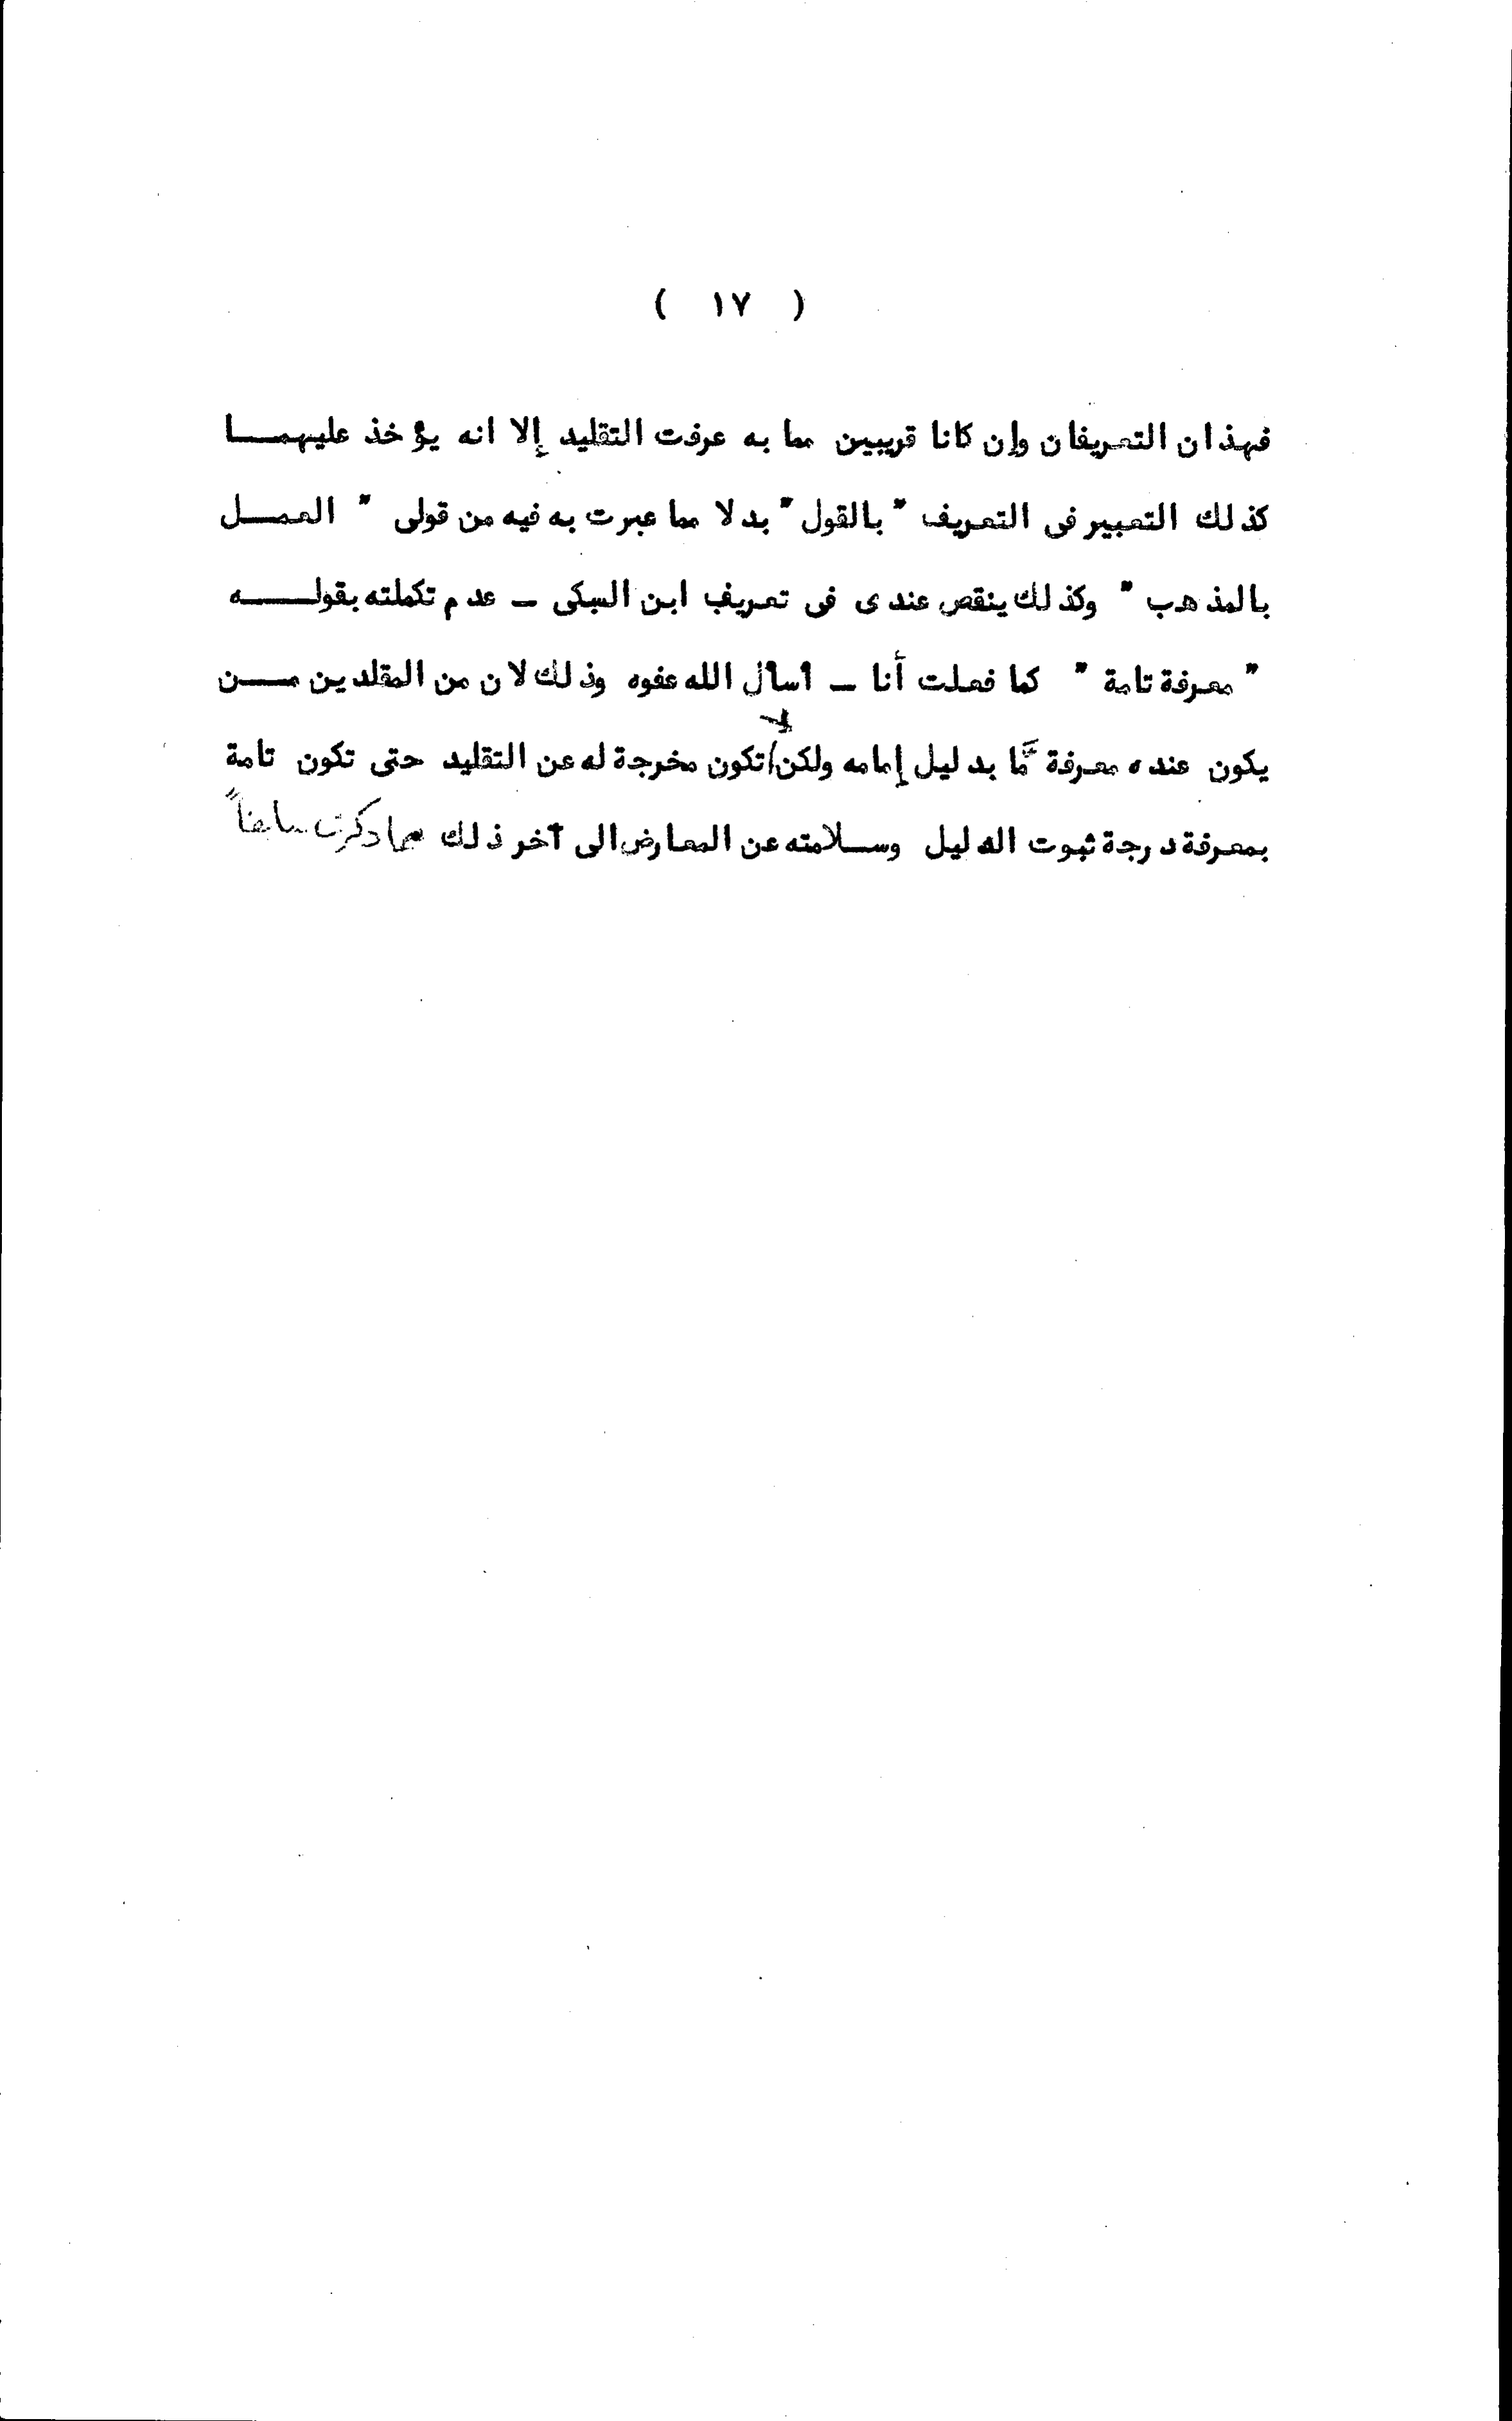 ( ١٧ )
فهذان التعريفان وإن كانا قريبين مما به عرفت التقليد إلا انه يؤخذ عليهمـــا
كذلك التعبير فى التعريف " بالقول " بدلا مما عبرت به فيه من قولى " العمـــل
بالمذهب " وكذلك ينقص عندى فى تعريف ابن السبكى ــ عدم تكملته بقولــــه
" معرفة تامة " كما فعلت أنا ــ أسأل الله عفوه وذلك لان من المقلدين مــــن
يكون عنده معرفة مَّا بدليل إمامه ولكن لا تكون مخرجة له عن التقليد حتى تكون تامة
بمعرفة درجة ثبوت الدليل وســلامته عن المعارض الى آخر ذلك مما ذكرت سابقاً